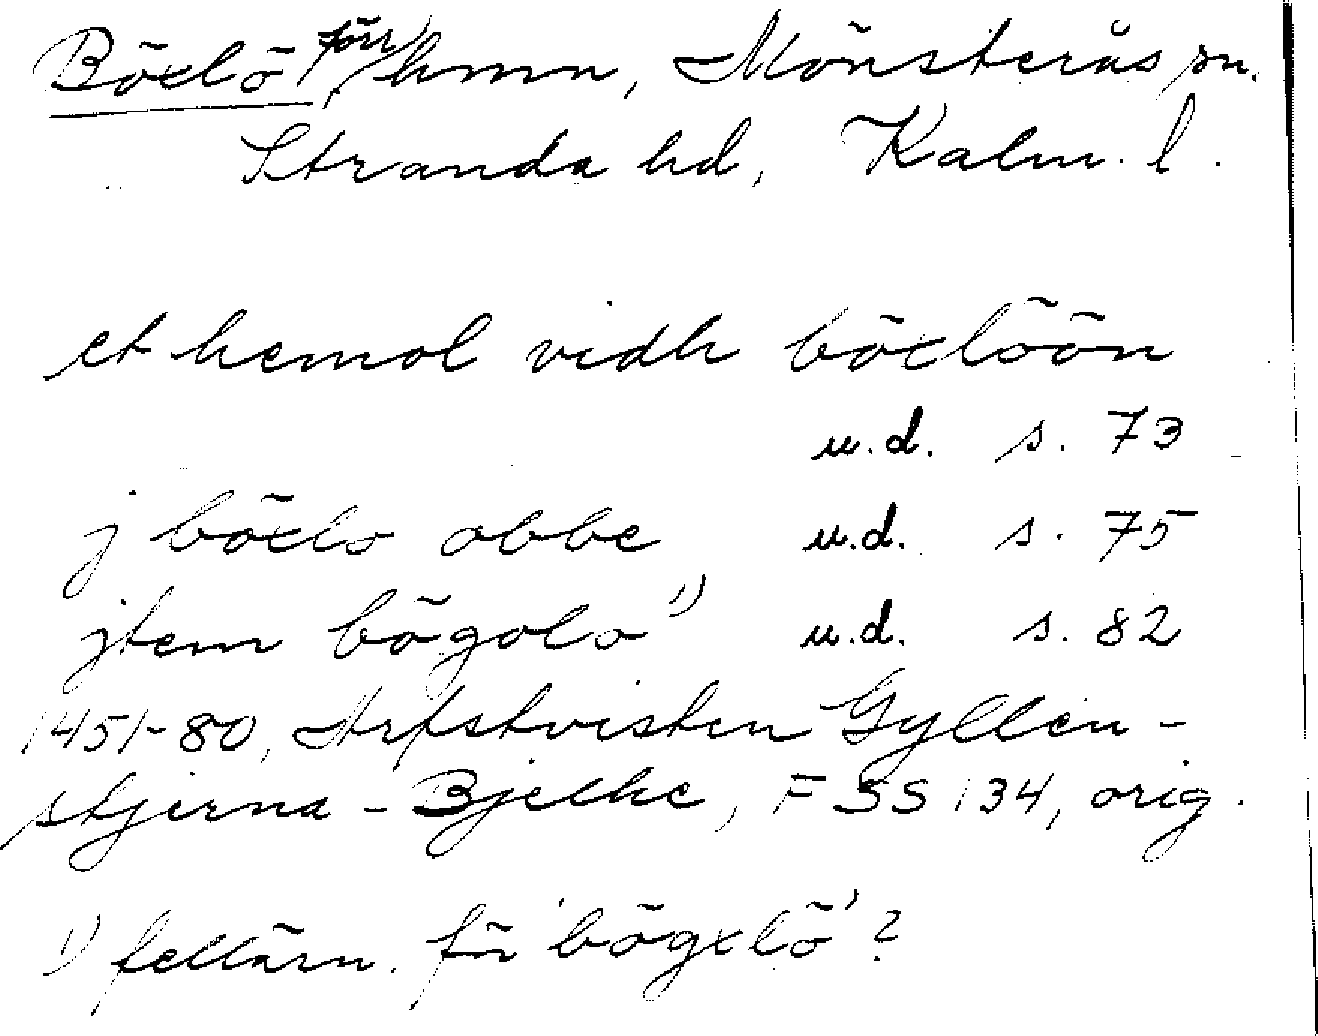 Böxlö, förr hmn, Mönsterås sn.
Stranda hd, Kalm. l.
et hemol vidh böxlöön
u.d. s. 73
j böxlo obbe u.d. s. 75
jtem bögolo 1) u.d. s. 82
1451-80, Arfstvisten Gyllen-
stjerna - Bjelke, FSS 134, orig.
1) felläsn. för 'bögxlö'?